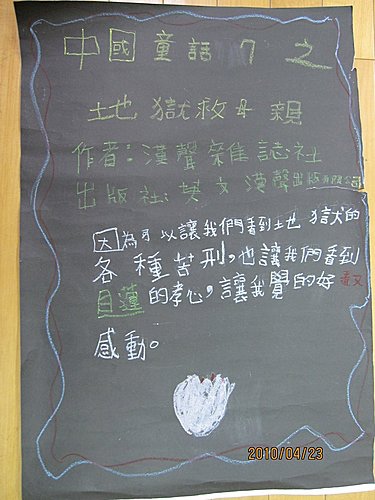 中國童話7之
地獄救母親
作者:漢聲雜誌社
出版社:英文漢聲出版有限公司
因為可以讓我們看到地獄的
各種苦刑,也讓我們看到
目蓮的孝心,讓我覺的好
感動。
2010/04/23